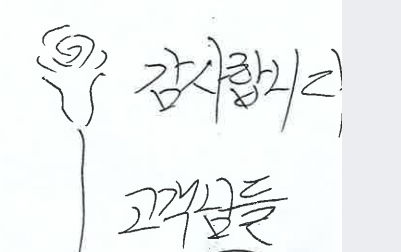 감사합니다
고객님들